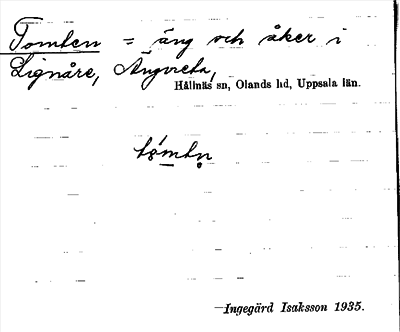 Tomten = äng och åker i
Lignåre, Ängvreta,
Hållnäs sn, Olands hd, Uppsala län.
tómtn̥
Ingegärd Isaksson 1935.